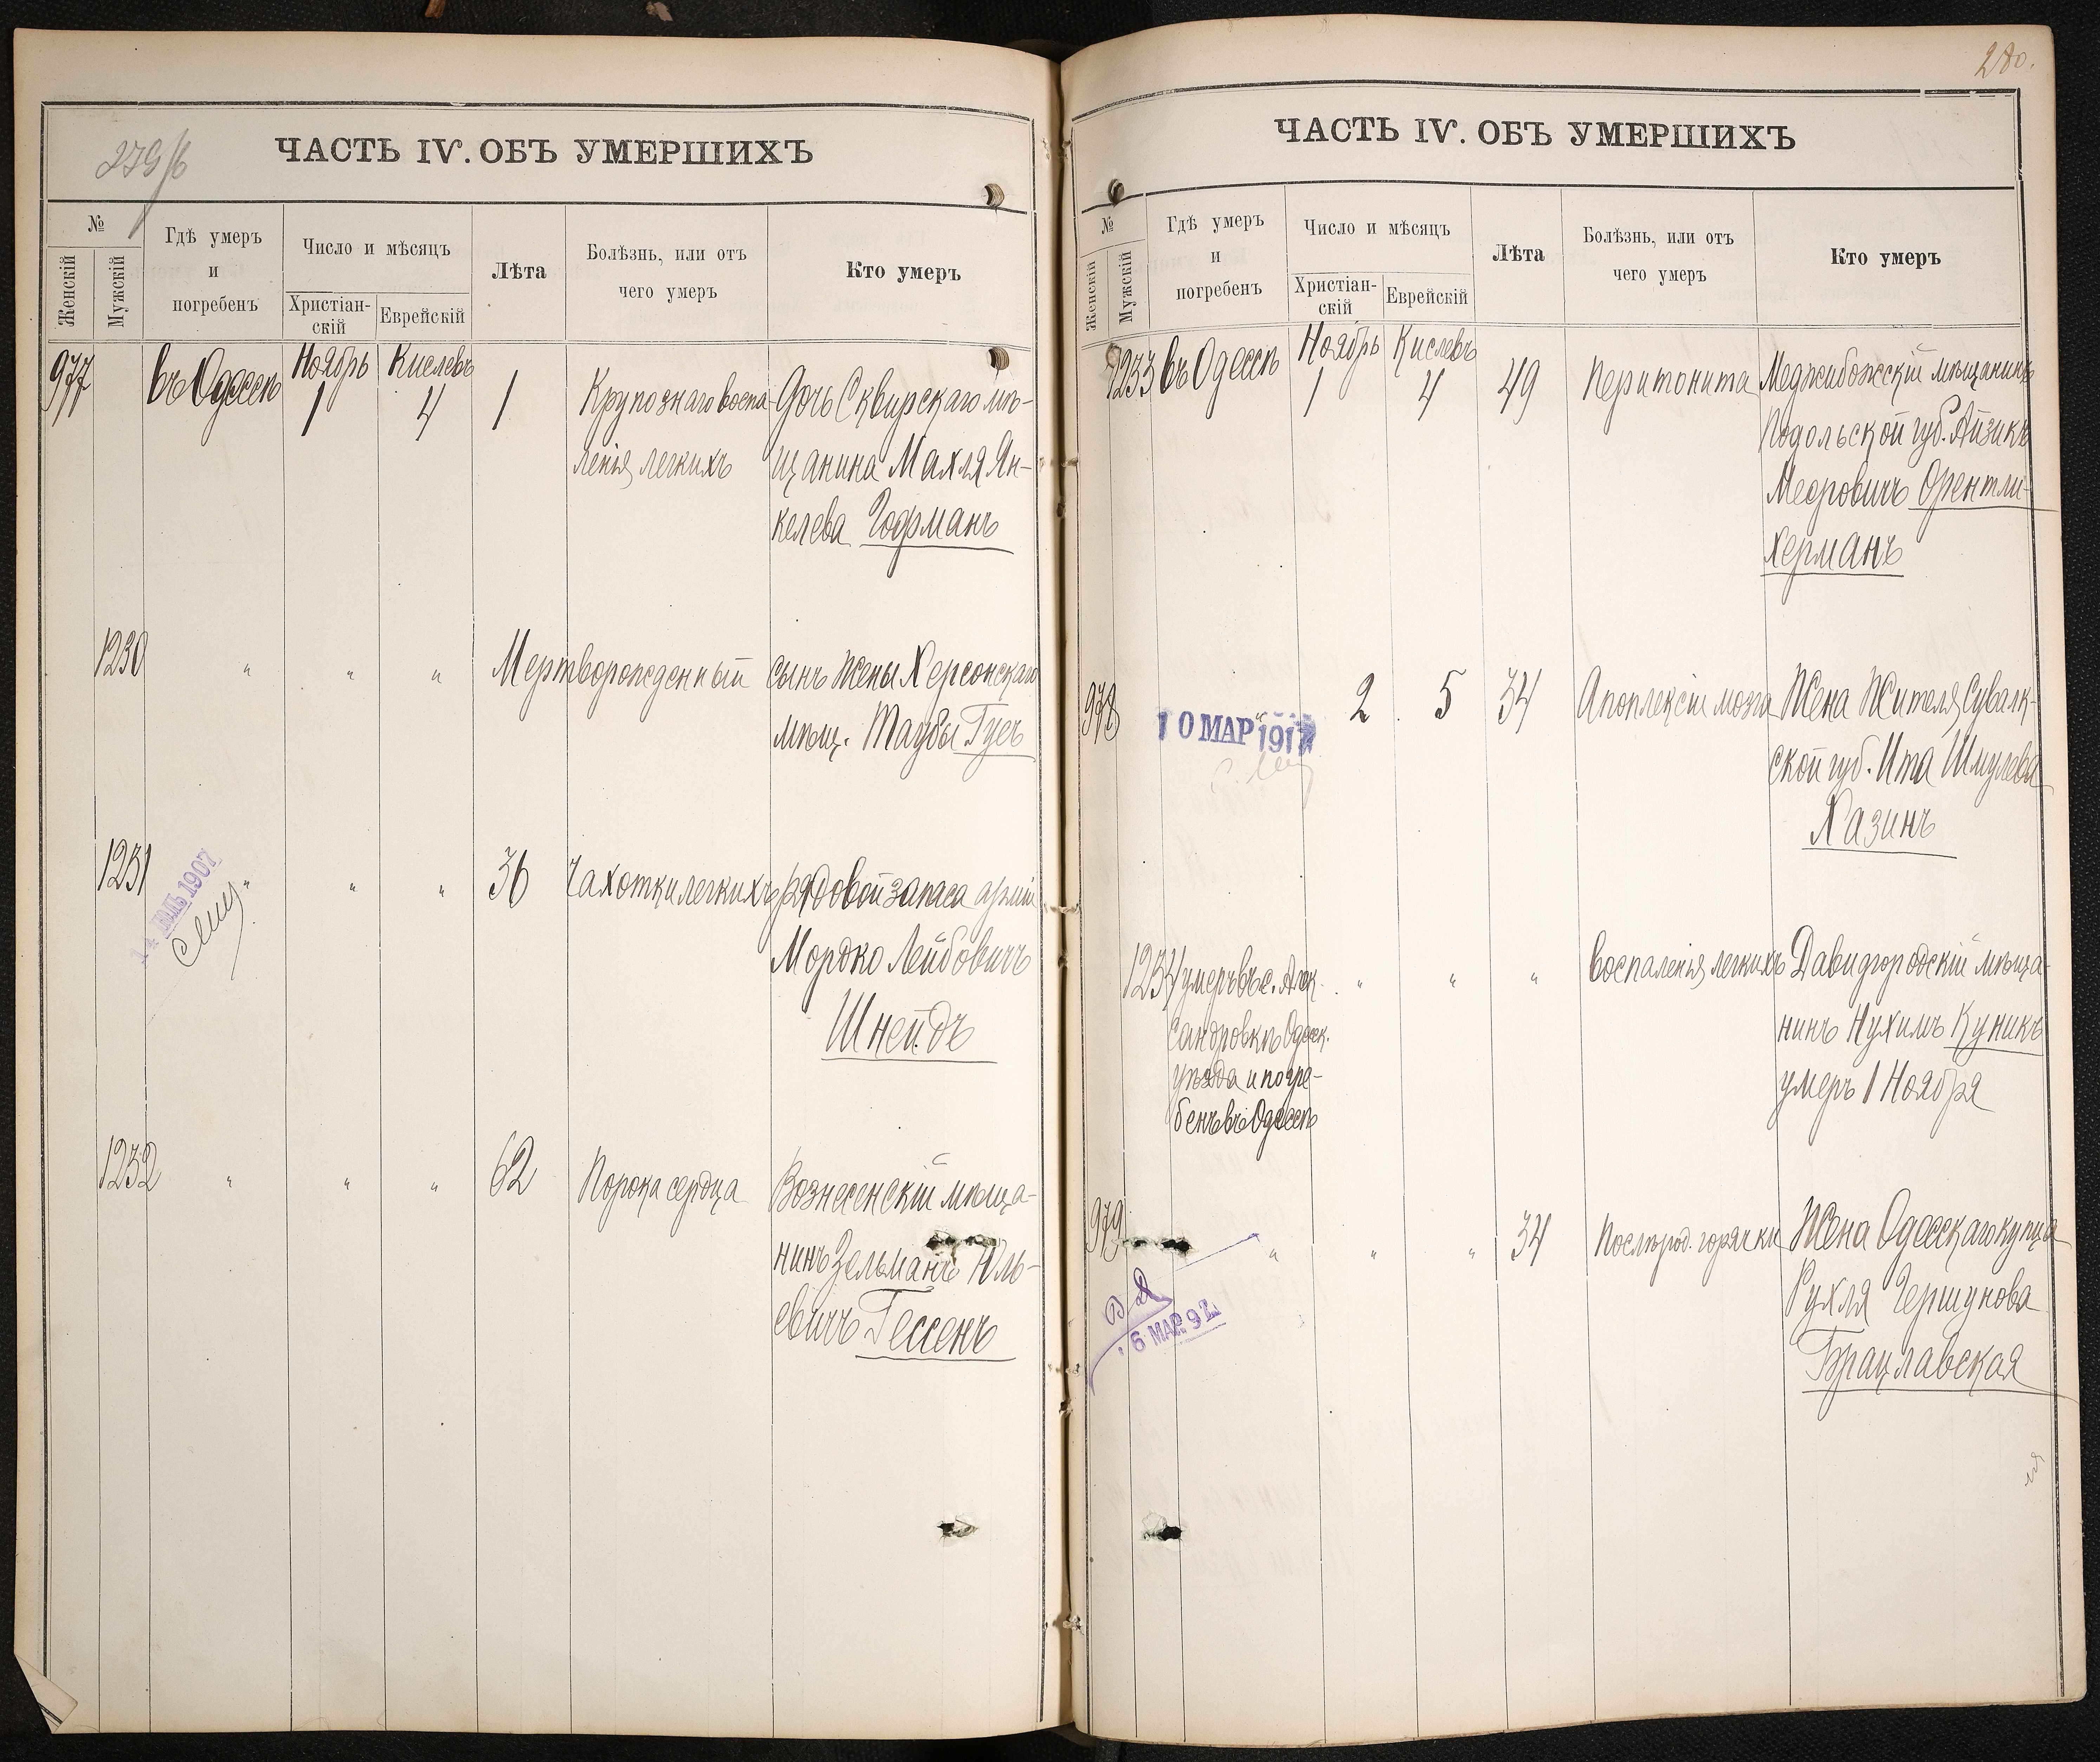 279/б
ЧАСТЬ IV. ОБЪ УМЕРШИХЪ
№
Женскій
Мужскій
Гдѣ умеръ
и
погребенъ
Число и мѣсяцъ
Христіан-
скій
Еврейскій
Лѣта
Болѣзнь, или отъ
чего умеръ
Кто умеръ
977 въ Одессѣ Ноябрь 1 Кислевъ 4 1 Крупознаго воспа- Дочь Сквирскаго мѣ-
ленія легкихъ щанина Махля Ян-
келева Гофманъ
1230 " " " Мертворожденный сынъ жены Херсонскаго
мѣщ. Таубы Гусъ
1231 " " " 36 Чахотки легкихъ рядовой запаса арміи
Мордко Лейбовичъ
Шнейдъ
ІЮЛЬ 1907
1232 " " " 62 Порока сердца Вознесенскій мѣща-
нинъ Зельманъ Юль-
евичъ Гессенъ
280.
ЧАСТЬ IV. ОБЪ УМЕРШИХЪ
№
Женскій
Мужскій
Гдѣ умеръ
и
погребенъ
Число и мѣсяцъ
Христіан-
скій
Еврейскій
Лѣта
Болѣзнь, или отъ
чего умеръ
Кто умеръ
1233 въ Одессѣ Ноябрь 1 Кислевъ 4 49 Перитонита Меджибожскій мѣщанинъ
Подольской губ. Айзикъ
Меэровичъ Орентли-
херманъ
978 " 2 5 34 Апоплексіи мозга Жена Жителя Сувалк-
ской губ. Ита Шмулева
Хазинъ
10 МАР 1917
1234 умеръ въ с. Алек- " " " воспаленія легкихъ Давидгородскій мѣща-
сандровкѣ Одесск. нинъ Нухимъ Куникъ
уѣзда и погре- умеръ 1 Ноября
бенъ въ Одессѣ
979 " " " 34 Послѣрод. горячки Жена Одесскаго купца
Рухля Гершунова
Брацлавская
6 МАР. 92